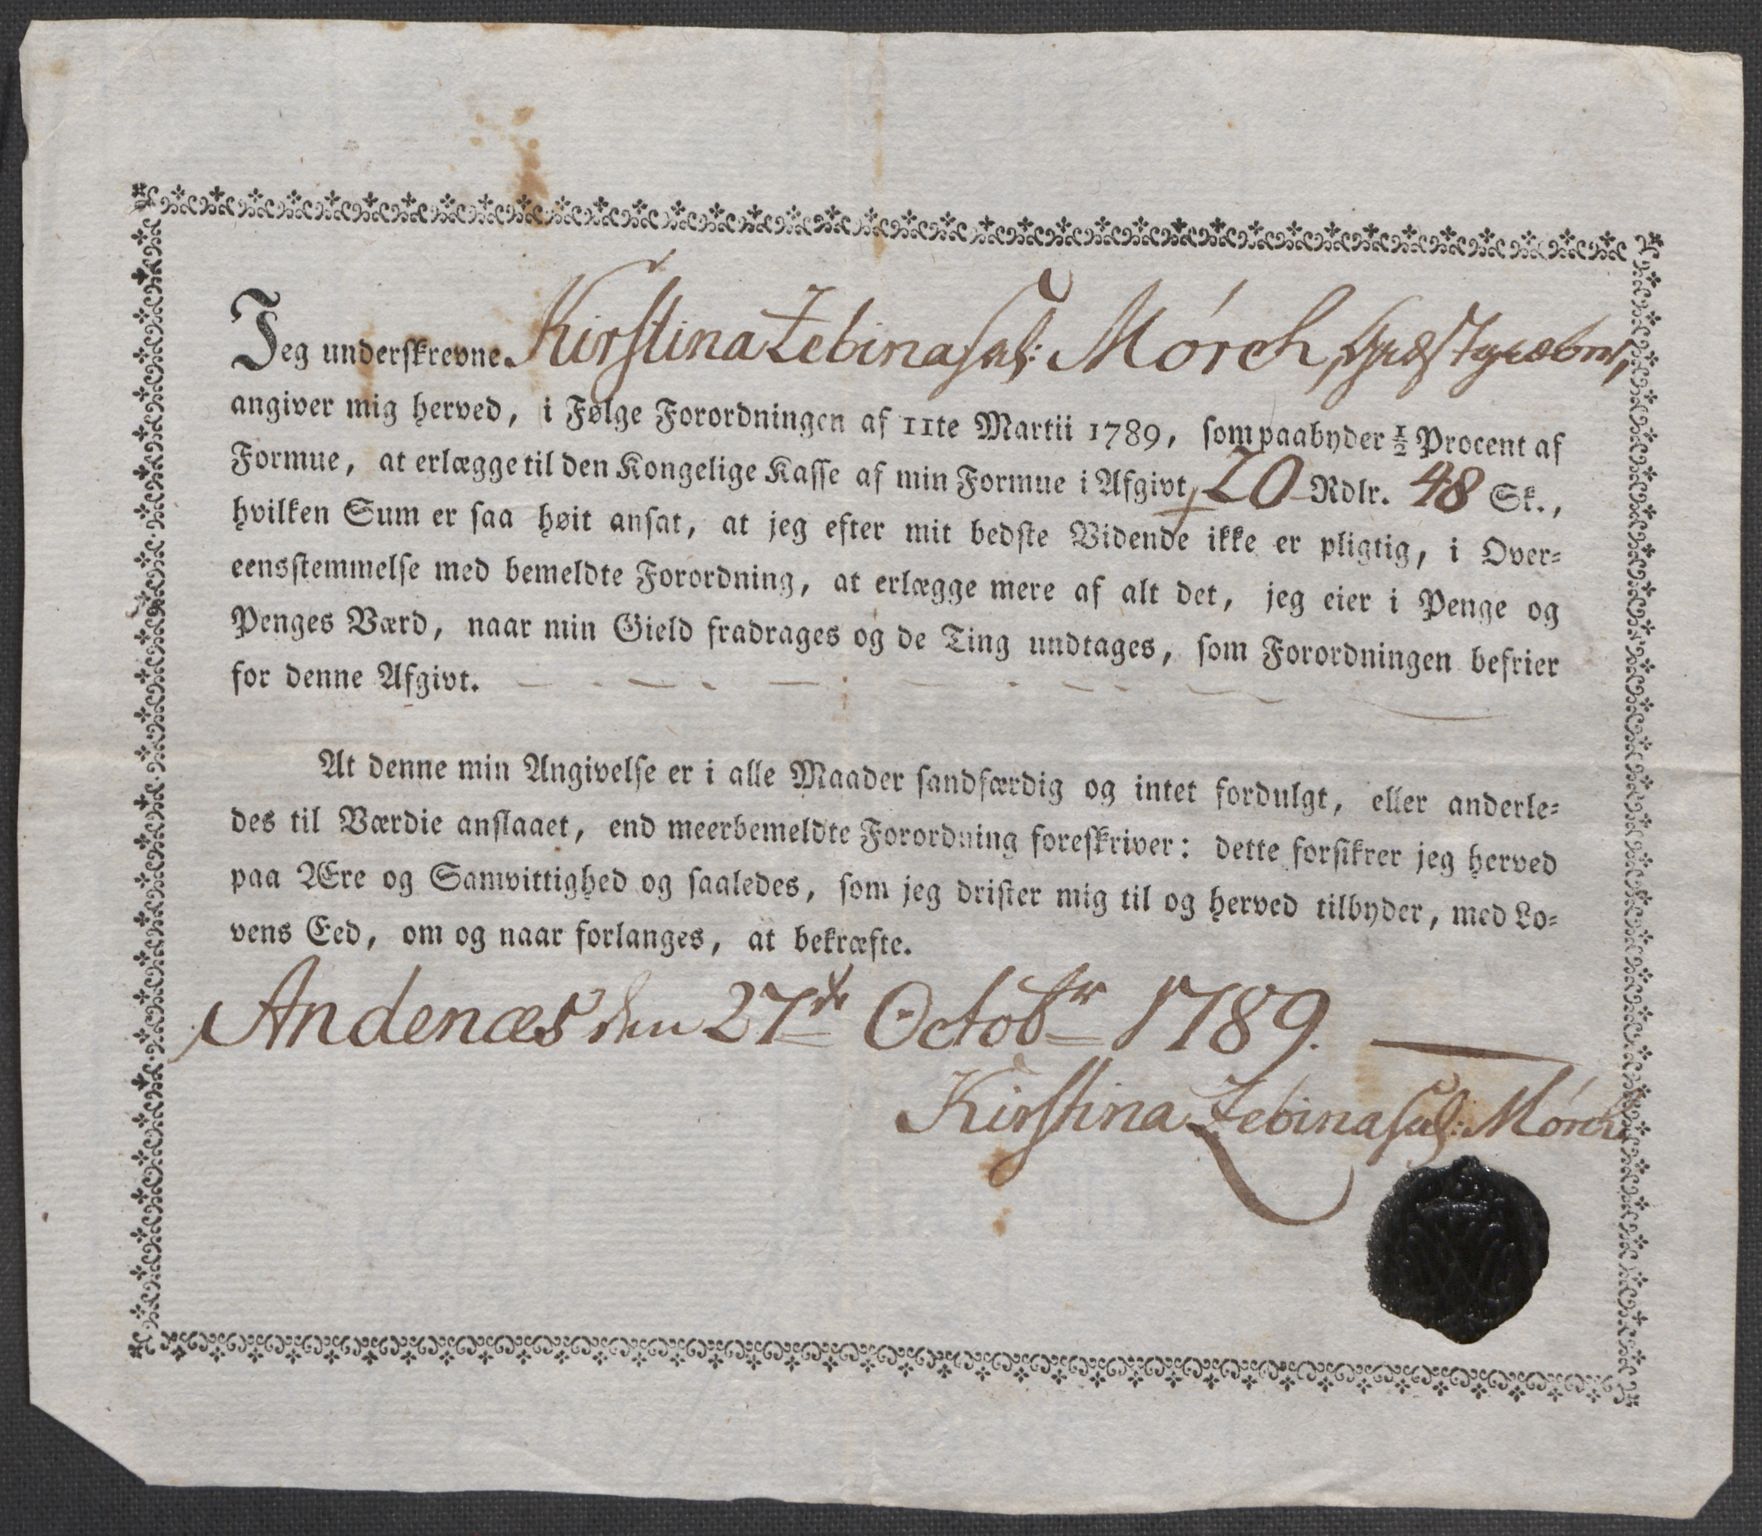 Jeg underskrevne Kirstina Zebina sal: Mörch, Giæstgiæber,
angiver mig herved, i Følge Forordningen af 11te Martii 1789, som paabyder ½ Procent af
Formue, at erlægge til den Kongelige Kasse af min Formue i Afgivt, 20 Rdlr. 48 Sk.,
hvilken Sum er saa høit ansat, at jeg efter mit bedste Vidende ikke er pligtig, i Over-
eensstemmelse med bemeldte Forordning, at erlægge mere af alt det, jeg eier i Penge og
Penges Værd, naar min Gield fradrages og de Ting undtages, som Forordningen befrier
for denne Afgivt.
At denne min Angivelse er i alle Maader sandfærdig og intet fordulgt, eller anderle-
des til Værdie anslaaet, end meerbemeldte Forordning foreskriver: dette forsikrer jeg herved
paa Ære og Samvittighed og saaledes, som jeg drister mig til og herved tilbyder, med Lo-
vens Eed, om og naar forlanges, at bekræfte.
Andenæs den 27de Octobr 1789.
Kirstina Zebina sal: Mörch